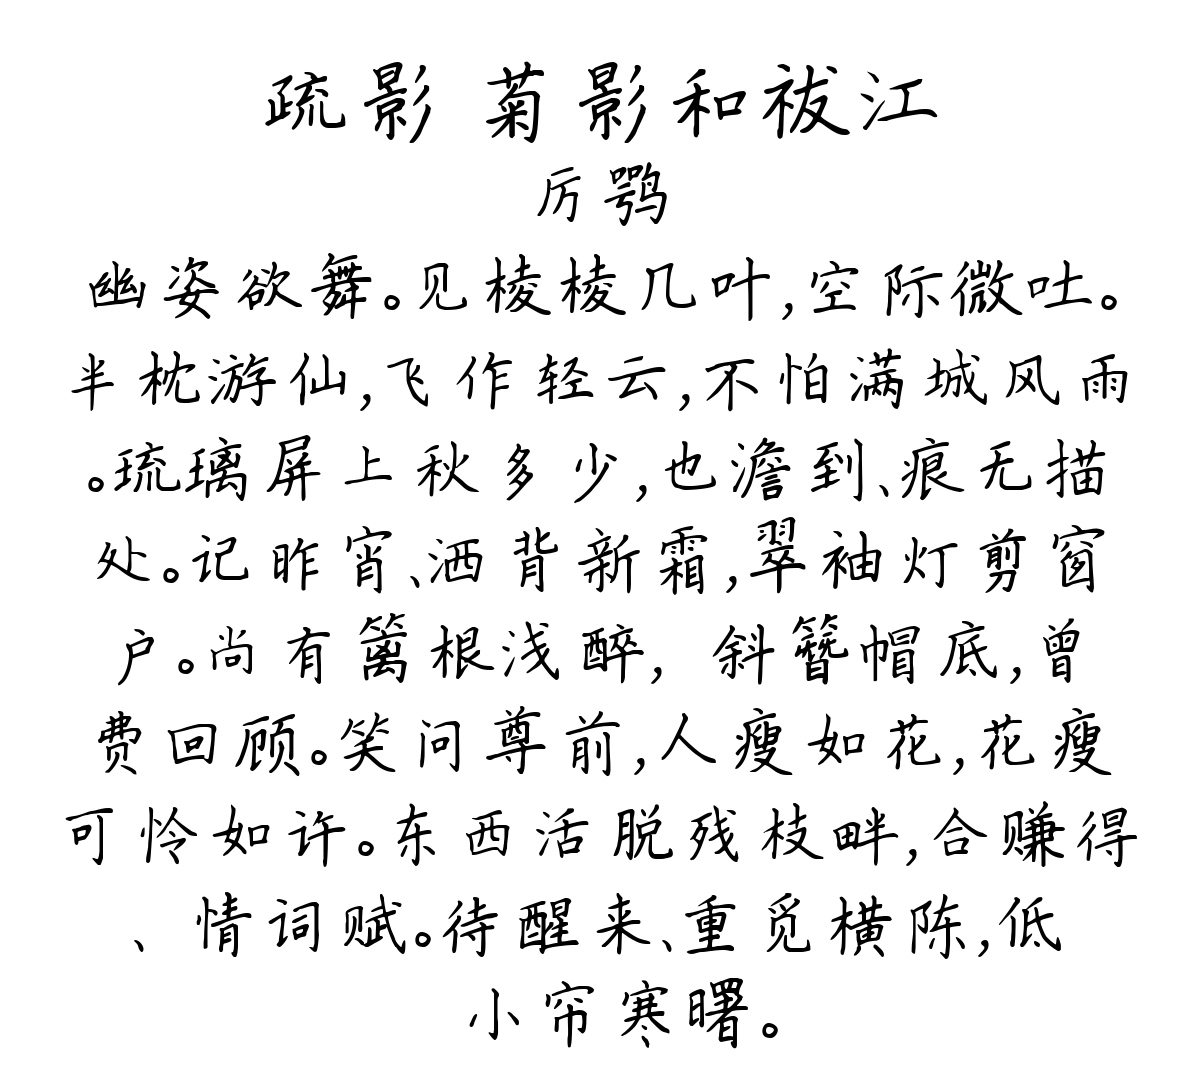 疏影 菊影和祓江
厉鹗
幽姿欲舞。见棱棱几叶,空际微吐。
半枕游仙,飞作轻云,不怕满城风雨
。琉璃屏上秋多少,也澹到、痕无描
处。记昨宵、洒背新霜,翠袖灯剪窗
户。尚有篱根浅醉, 斜簪帽底,曾
费回顾。笑问尊前,人瘦如花,花瘦
可怜如许。东西活脱残枝畔,合赚得
、 情词赋。待醒来、重觅横陈,低
小帘寒曙。